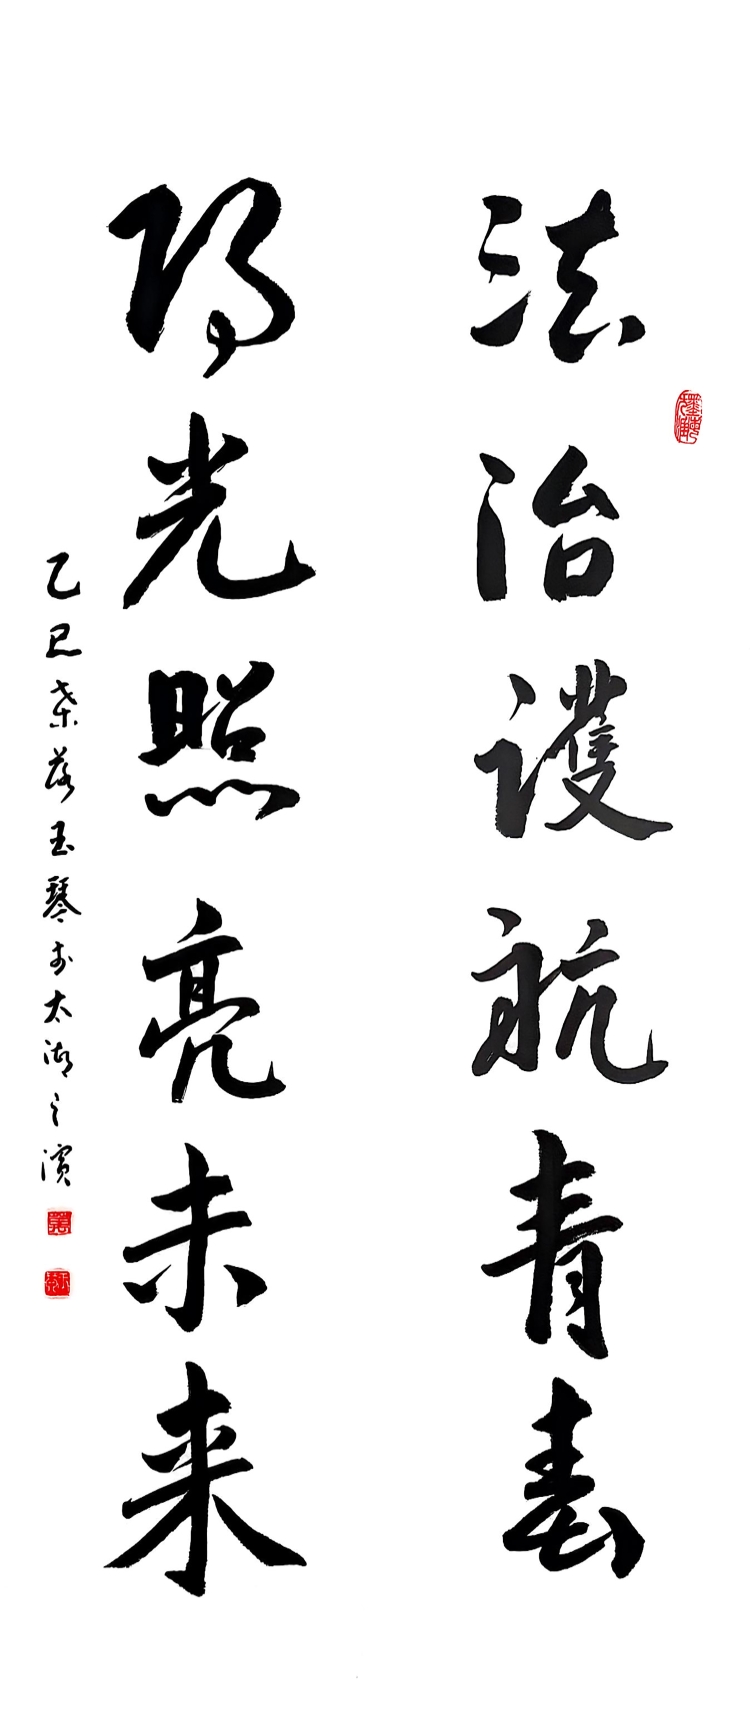 法治護航青春
陽光照亮未来
乙巳玉琴於太湖之濱